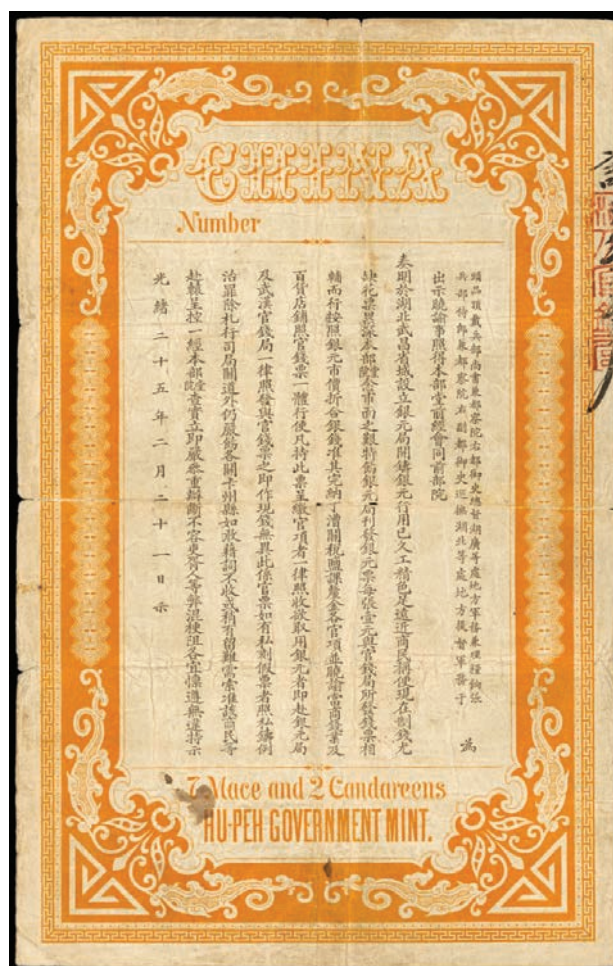 CHINA
Number
頭品頂戴兵部尚書兼都察院右都御史總督湖廣等處地方軍務兼理糧餉張
兵部侍郎兼都察院右副都御史巡撫湖北等處地方提督軍務于
為
出示曉諭事照得本部堂前經會同前部院
奏明於湖北武昌省城設立銀元局開鑄銀元行用已久工精色足遠近商民稱便現在制錢尤
缺花票異詠本部堂院念市面之艱特飭銀元局刊發銀元票每張壹元與官錢局所發錢票相
輔而行按照銀元市價折合銀錢准其完納丁漕關稅鹽課釐金各官項並曉諭當商錢業及
百貨店鋪照官錢票一體行使凡持此票呈繳官項者一律照收欲取用銀元者即赴銀元局
及武漢官錢局一律照發與官錢票之即作現錢無異此係官票如有私刻假票者照私鑄例
治罪除札行司局關道外仍嚴飭各關卡州縣如敢藉詞不收或稍有留難需索准該商民等
赴轅呈控一經本部堂院查實立即嚴參重辦斷不容吏胥人等弊混梗阻各宜懍遵無違特示
光緒二十五年二月二十一日示
7 Mace and 2 Candareens
HU-PEH GOVERNMENT MINT.